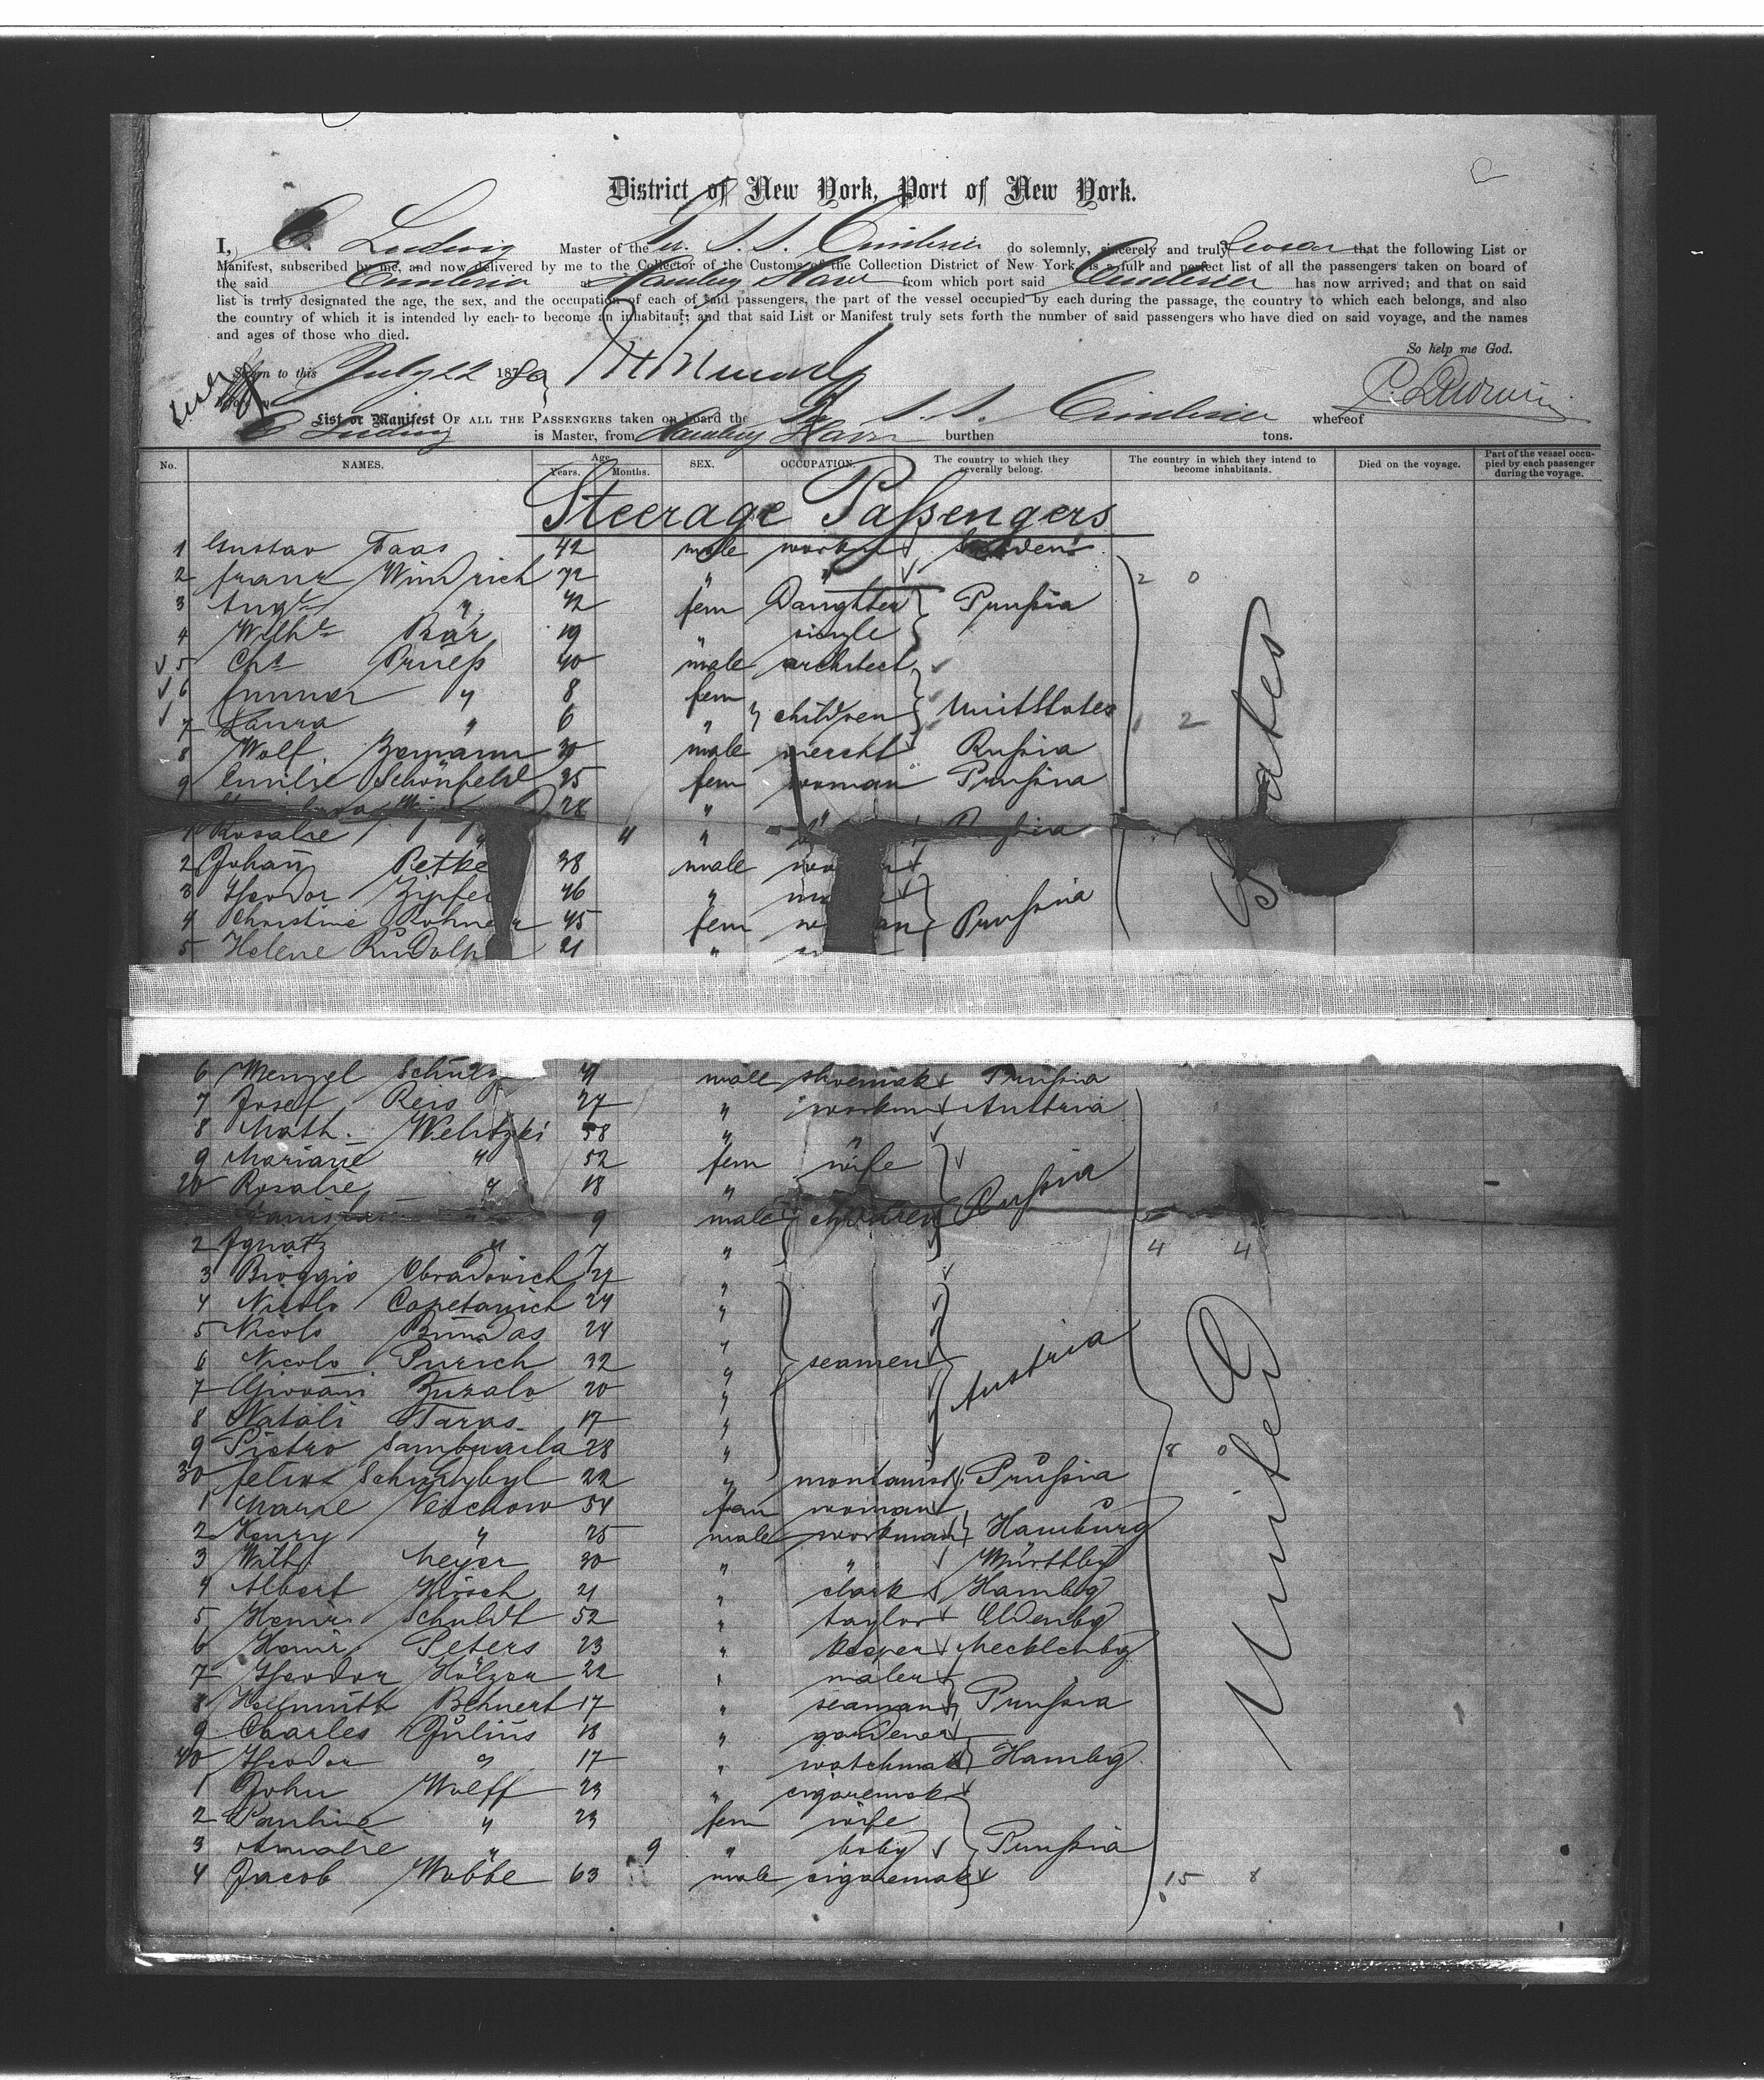 District of New York, Port of New York.
I, C. Ludwig Master of the S. S. Cimbria do solemnly, sincerely and truly swear that the following List or
Manifest, subscribed by me, and now delivered by me to the Collector of the Customs of the Collection District of New York, is a full and perfect list of all the passengers taken on board of
the said Cimbria at Hamburg Havre from which port said Cimbria has now arrived; and that on said
list is truly designated the age, the sex, and the occupation of each of said passengers, the part of the vessel occupied by each during the passage, the country to which each belongs, and also
the country of which it is intended by each to become an inhabitant; and that said List or Manifest truly sets forth the number of said passengers who have died on said voyage, and the names
and ages of those who died.
So help me God.
Sworn to this July 22 1880
before me
List or Manifest OF ALL THE PASSENGERS taken on board the S. S. Cimbria whereof
C Ludwig is Master, from Hamburg Havre burthen tons.
No. NAMES. Age Years. Months. SEX. OCCUPATION. The country to which they severally belong. The country in which they intend to become inhabitants. Died on the voyage. Part of the vessel occupied by each passenger during the voyage.
Steerage Passengers
1 Gustav Faas 42 male workm
2 Franz Windrich 72 " " 2 0
3 Aug.te " 42 fem Daughter Prußia
4 Wilh.e Bär 19 " single
5 Chs Prueß 40 male architect
6 " 8 fem
7 Laura " 6 " children Unit States 1 2
8 Wolf Zemann 30 male mercht Rußia
9 Emilie Schönfeld 25 fem woman Prußia
28 "
1 Rosalie " 11 "
2 Johan Petke 38 male
3 Theodor 46 "
4 Christine 45 fem Prußia
5 Helene Rudolph 21 "
6 Wenzel Schulz male shoemak Prußia
7 Josef Reis 27 " workm Austria
8 Math. Welitzki 58 " "
9 Mariane " 52 fem wife
20 Rosalie " 18 "
" 9 male children Rußia
2 Ignatz " 7 " 4 4
3 Bioggio Obradovich 27 "
4 Nicolo Capetanich 24 "
5 Nicolo Bundas 24 "
6 Nicolo Purich 32 " seamen Austria
7 Giovani Zuzalo 20 "
8 Natali Taras 17 "
9 Pietro Sambuaila 28 " 8 0
30 Felix 22 " montanist Prußia
1 Marie Veschow 54 fem woman
2 Henry " 25 male workman Hamburg
3 Wilh. Meyer 30 " " Württbg
4 Albert Hirsch 21 " clark Hambg
5 Heinr. Schuldt 52 " taylor Oldenbg
6 Heinr. Peters 23 " keeper Mecklenbg
7 Theodor Hölzer 22 " maler
8 Hellmuth Behnert 17 " seaman Prußia
9 Charles Julius 18 " gardener
40 Theodor " 17 " watchmak Hambg
1 John Wolff 23 " cigaremak
2 Pauline " 23 fem wife
3 Amalie " 9 " baby Prußia
4 Jacob Wobbe 63 male cigaremak 15 8
United States